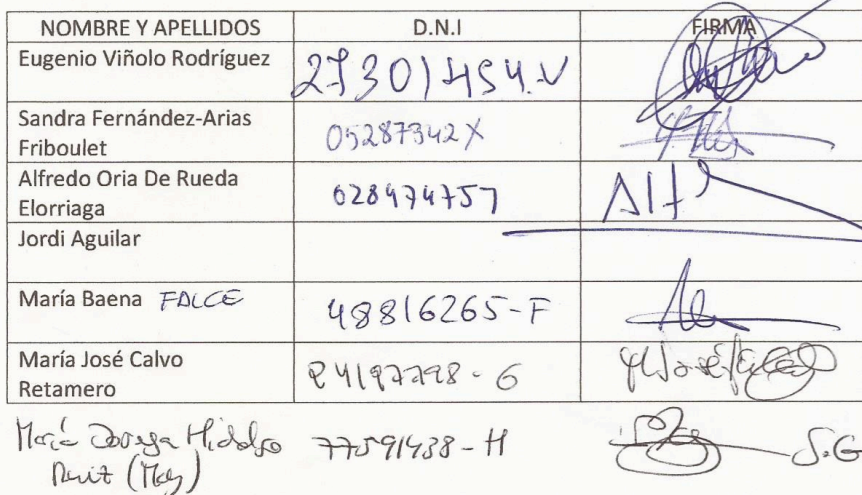 NOMBRE Y APELLIDOS D.N.I FIRMA
Eugenio Viñolo Rodríguez 27301454.V
Sandra Fernández-Arias
Friboulet 05287342X
Alfredo Oria De Rueda
Elorriaga
Jordi Aguilar
María Baena FALCE 48816265-F
María José Calvo
Retamero 24197798-G
María Hidalgo 77591438-H
Ruiz (May) S.G